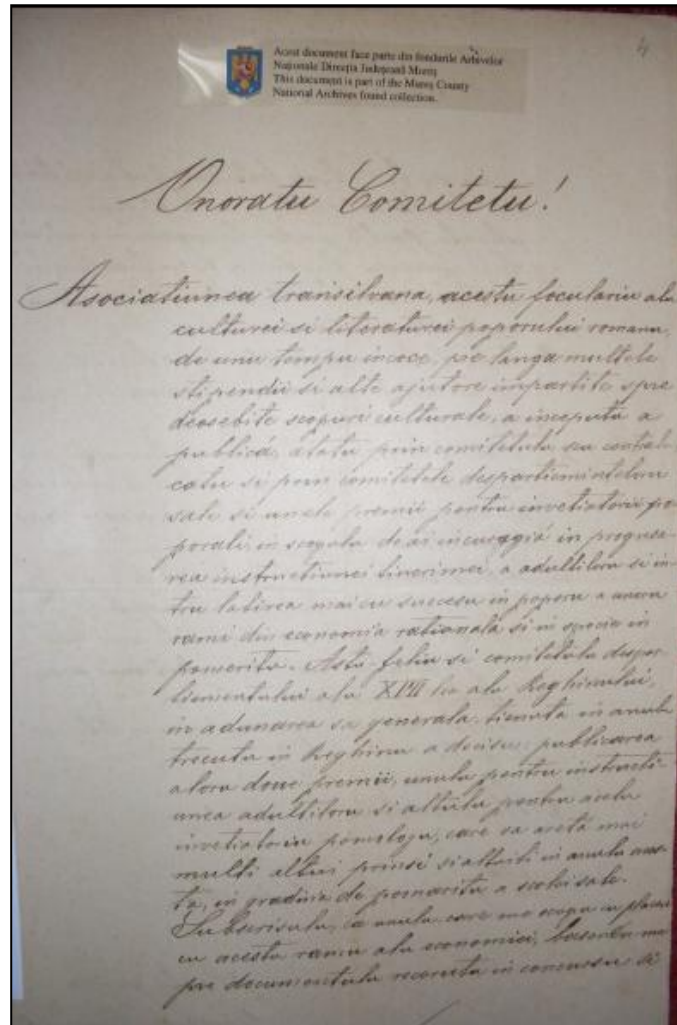 4
Acest document face parte din fondurile Arhivelor
Naționale Direcția Județeană Mureș
This document is part of the Mureș County
National Archives found collection.
Onoratu Comitetu!
Asociatiunea transilvana, acestu foculariu alu
culturei si literaturei poporului romanu,
de unu tempu incoce, pe langa multele
stipendii si alte ajutore impartite spre
deosebite scopuri culturale, a inceputu a
publicá, atatu prin comitetulu seu centrale,
catu si prin comitetele despartieminteloru
sale si unele premii pentru invetiatorii po-
porali, in scopulu de ai incuragiá in progresa-
rea instructiunei tinerimei, a adultiloru si in-
tru latirea mai cu succesu in poporu a unoru
rami din economia rationala si in specie in
pomaritu. Astu-feliu si comitetulu despar-
tiementului alu XVII lea alu Reghinului,
in adunarea sa generala, tienuta in anulu
trecutu in Reghinu a decisu publicarea
aloru doue premii, unulu pentru instructi-
unea adultiloru si altulu pentru acelu
invetiatoriu pomologu, care va aretá mai
multi altoi prinsi si altuiti in anulu aces-
ta, in gradina de pomaritu a scolei sale.
Subscrisulu, ca unulu care me ocupu cu placere
cu acestu ramu alu economiei, basandu-me
pre documentulu recerutu in concursu si